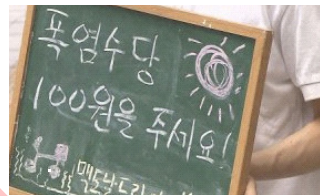 폭염수당
100원을 주세요!